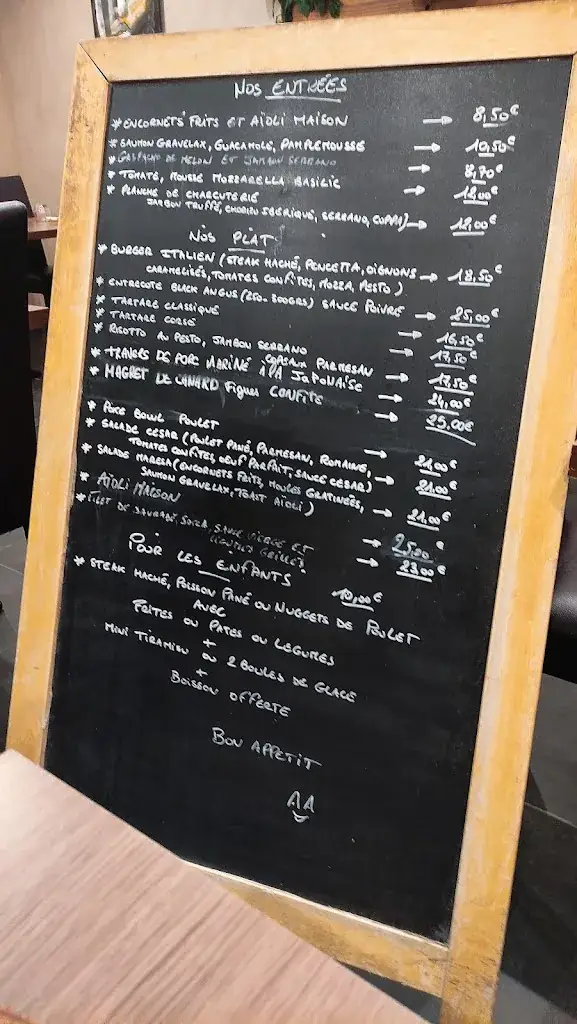 NOS ENTRÉES
* ENCORNETS FRITS ET AÏOLI MAISON → 8,50€
* SAUMON GRAVELAX, GUACAMOLE, PAMPLEMOUSSE → 10,50€
* GASPACHO DE MELON ET JAMBON SERRANO → 8,70€
* TOMATE, MOUSSE MOZZARELLA BASILIC → 12,00€
* PLANCHE DE CHARCUTERIE
JAMBON TRUFFÉ, CHORIZO IBÉRIQUE, SERRANO, COPPA) → 12,00€
NOS PLAT
* BURGER ITALIEN (STEAK HACHÉ, PENCETTA, OIGNONS → 18,50€
CARAMELISÉS, TOMATES CONFITES, MOZZA, PESTO)
* ENTRECOTE BLACK ANGUS (250. 300GRS) SAUCE POIVRE → 25,00€
* TARTARE CLASSIQUE → 16,50€
* TARTARE CORSÉ → 17,50€
* RISOTTO AU PESTO, JAMBON SERRANO COPEAUX PARMESAN → 17,50€
* TRAVERS DE PORC MARINÉ A LA JAPONAISE → 24,00€
* MAGRET DE CANARD Figues CONFITE → 25,00€
* POKE BOWL POULET → 21,00€
* SALADE CESAR (POULET PANÉ, PARMESAN, ROMAINE, → 21,00€
TOMATES CONFITES, OEUF PARFAIT, SAUCE CESAR)
* SALADE MAREA (ENCORNETS FRITS, MOULES GRATINÉES, → 21,00€
SAUMON GRAVELAX, TOAST AÏOLI)
* AÏOLI MAISON → 25,00€
* FILET DE SAUCE VIERGE ET → 23,00€
LÉGUMES GRILLÉS
POUR LES ENFANTS 10,00€
* STEAK HACHÉ, POISSON PANÉ OU NUGGETS DE POULET
AVEC
FRITES OU PATES OU LEGUMES
+
MINI TIRAMISU OU 2 BOULES DE GLACE
+
BOISSON OFFERTE
BON APPETIT